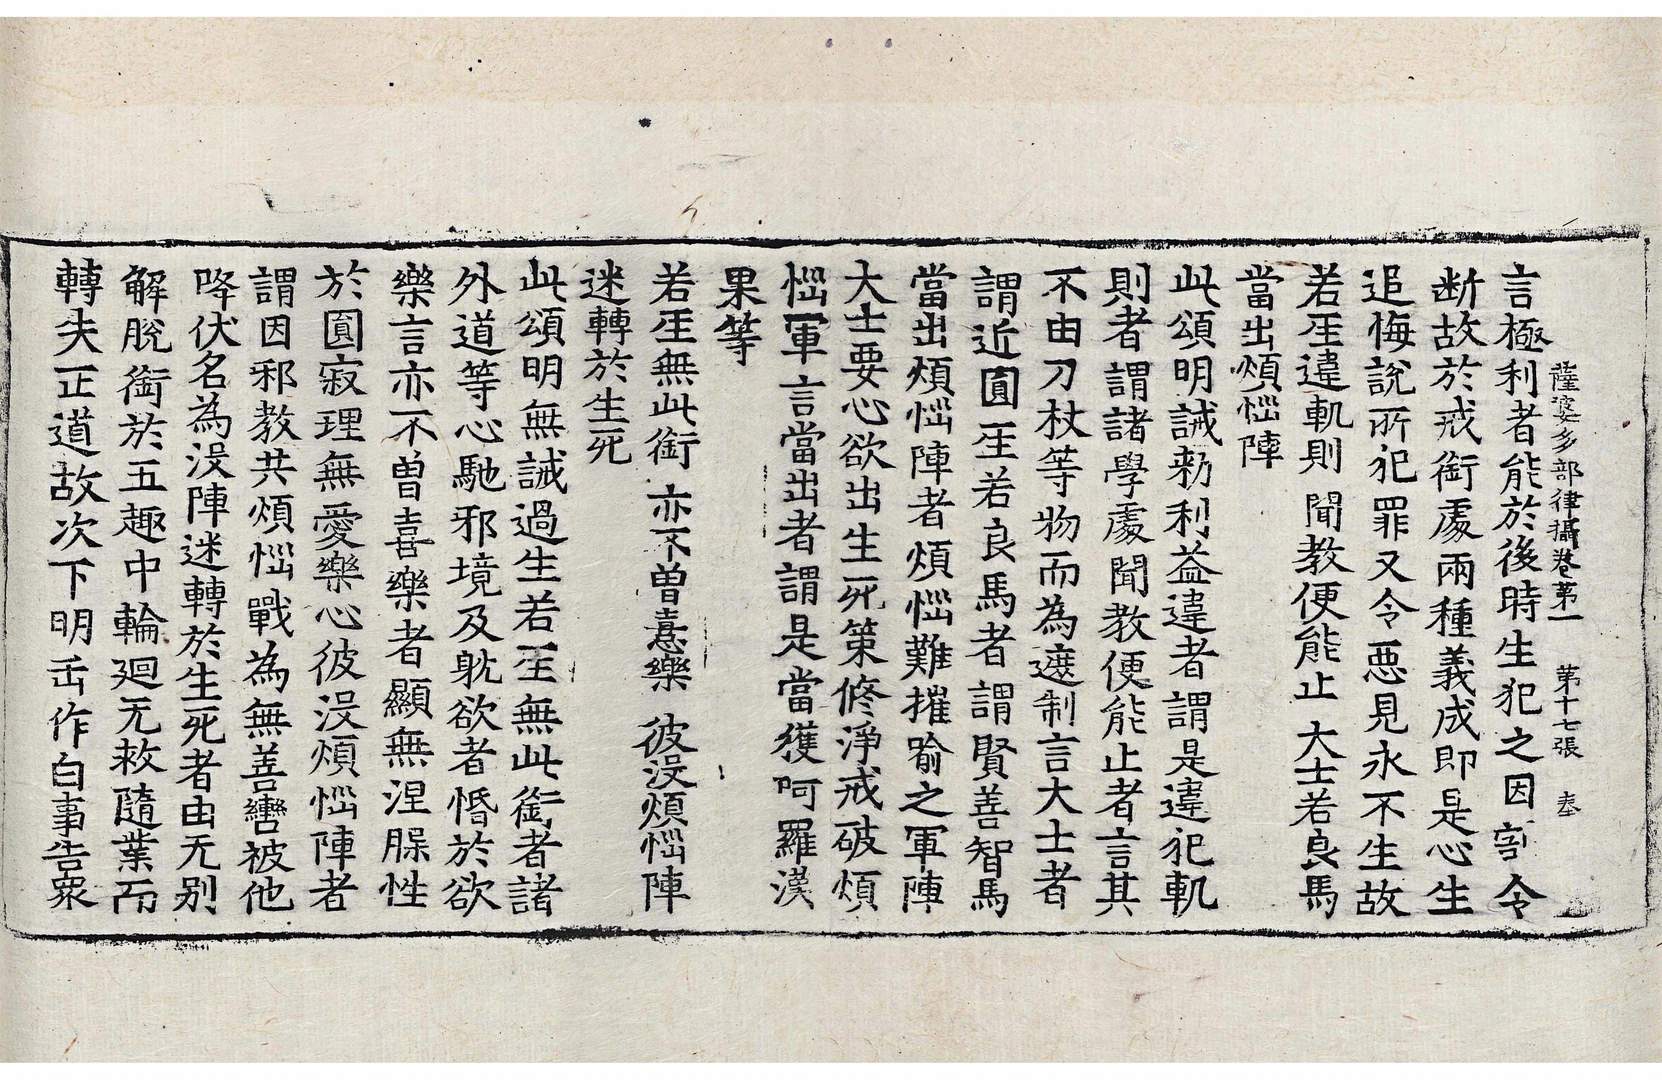 薩婆多部律攝卷第一　第十七張　奉
言極利者能於後時生犯之因割令
断故於戒銜處兩種義成即是心生
追悔說所犯罪又令惡見永不生故
若𤯔違軌則　聞教便能止　大士若良馬
當出煩𢙉陣
此頌明誡勑利益違者謂是違犯軌
則者謂諸學處聞教便能止者言其
不由刀杖等物而為遮制言大士者
謂近圓𤯔若良馬者謂賢善智馬
當出煩𢙉陣者煩𢙉難摧喻之軍陣
大士要心欲出生死策修淨戒破煩
𢙉軍言當出者謂是當獲阿羅漢
果等
若𤯔無此銜　亦不曾憙樂　彼沒煩𢙉陣
迷轉於生死
此頌明無誡過生若𤯔無此銜者諸
外道等心馳邪境及躭欲者惛於欲
樂言亦不曾喜樂者顯無涅槃性
於圓寂理無愛樂心彼沒煩𢙉陣者
謂因邪教共煩𢙉戰為無善轡被他
降伏名為沒陣迷轉於生死者由无別
解脫銜於五趣中輪迴无救隨業而
轉失正道故次下明𠱾作白事告眾